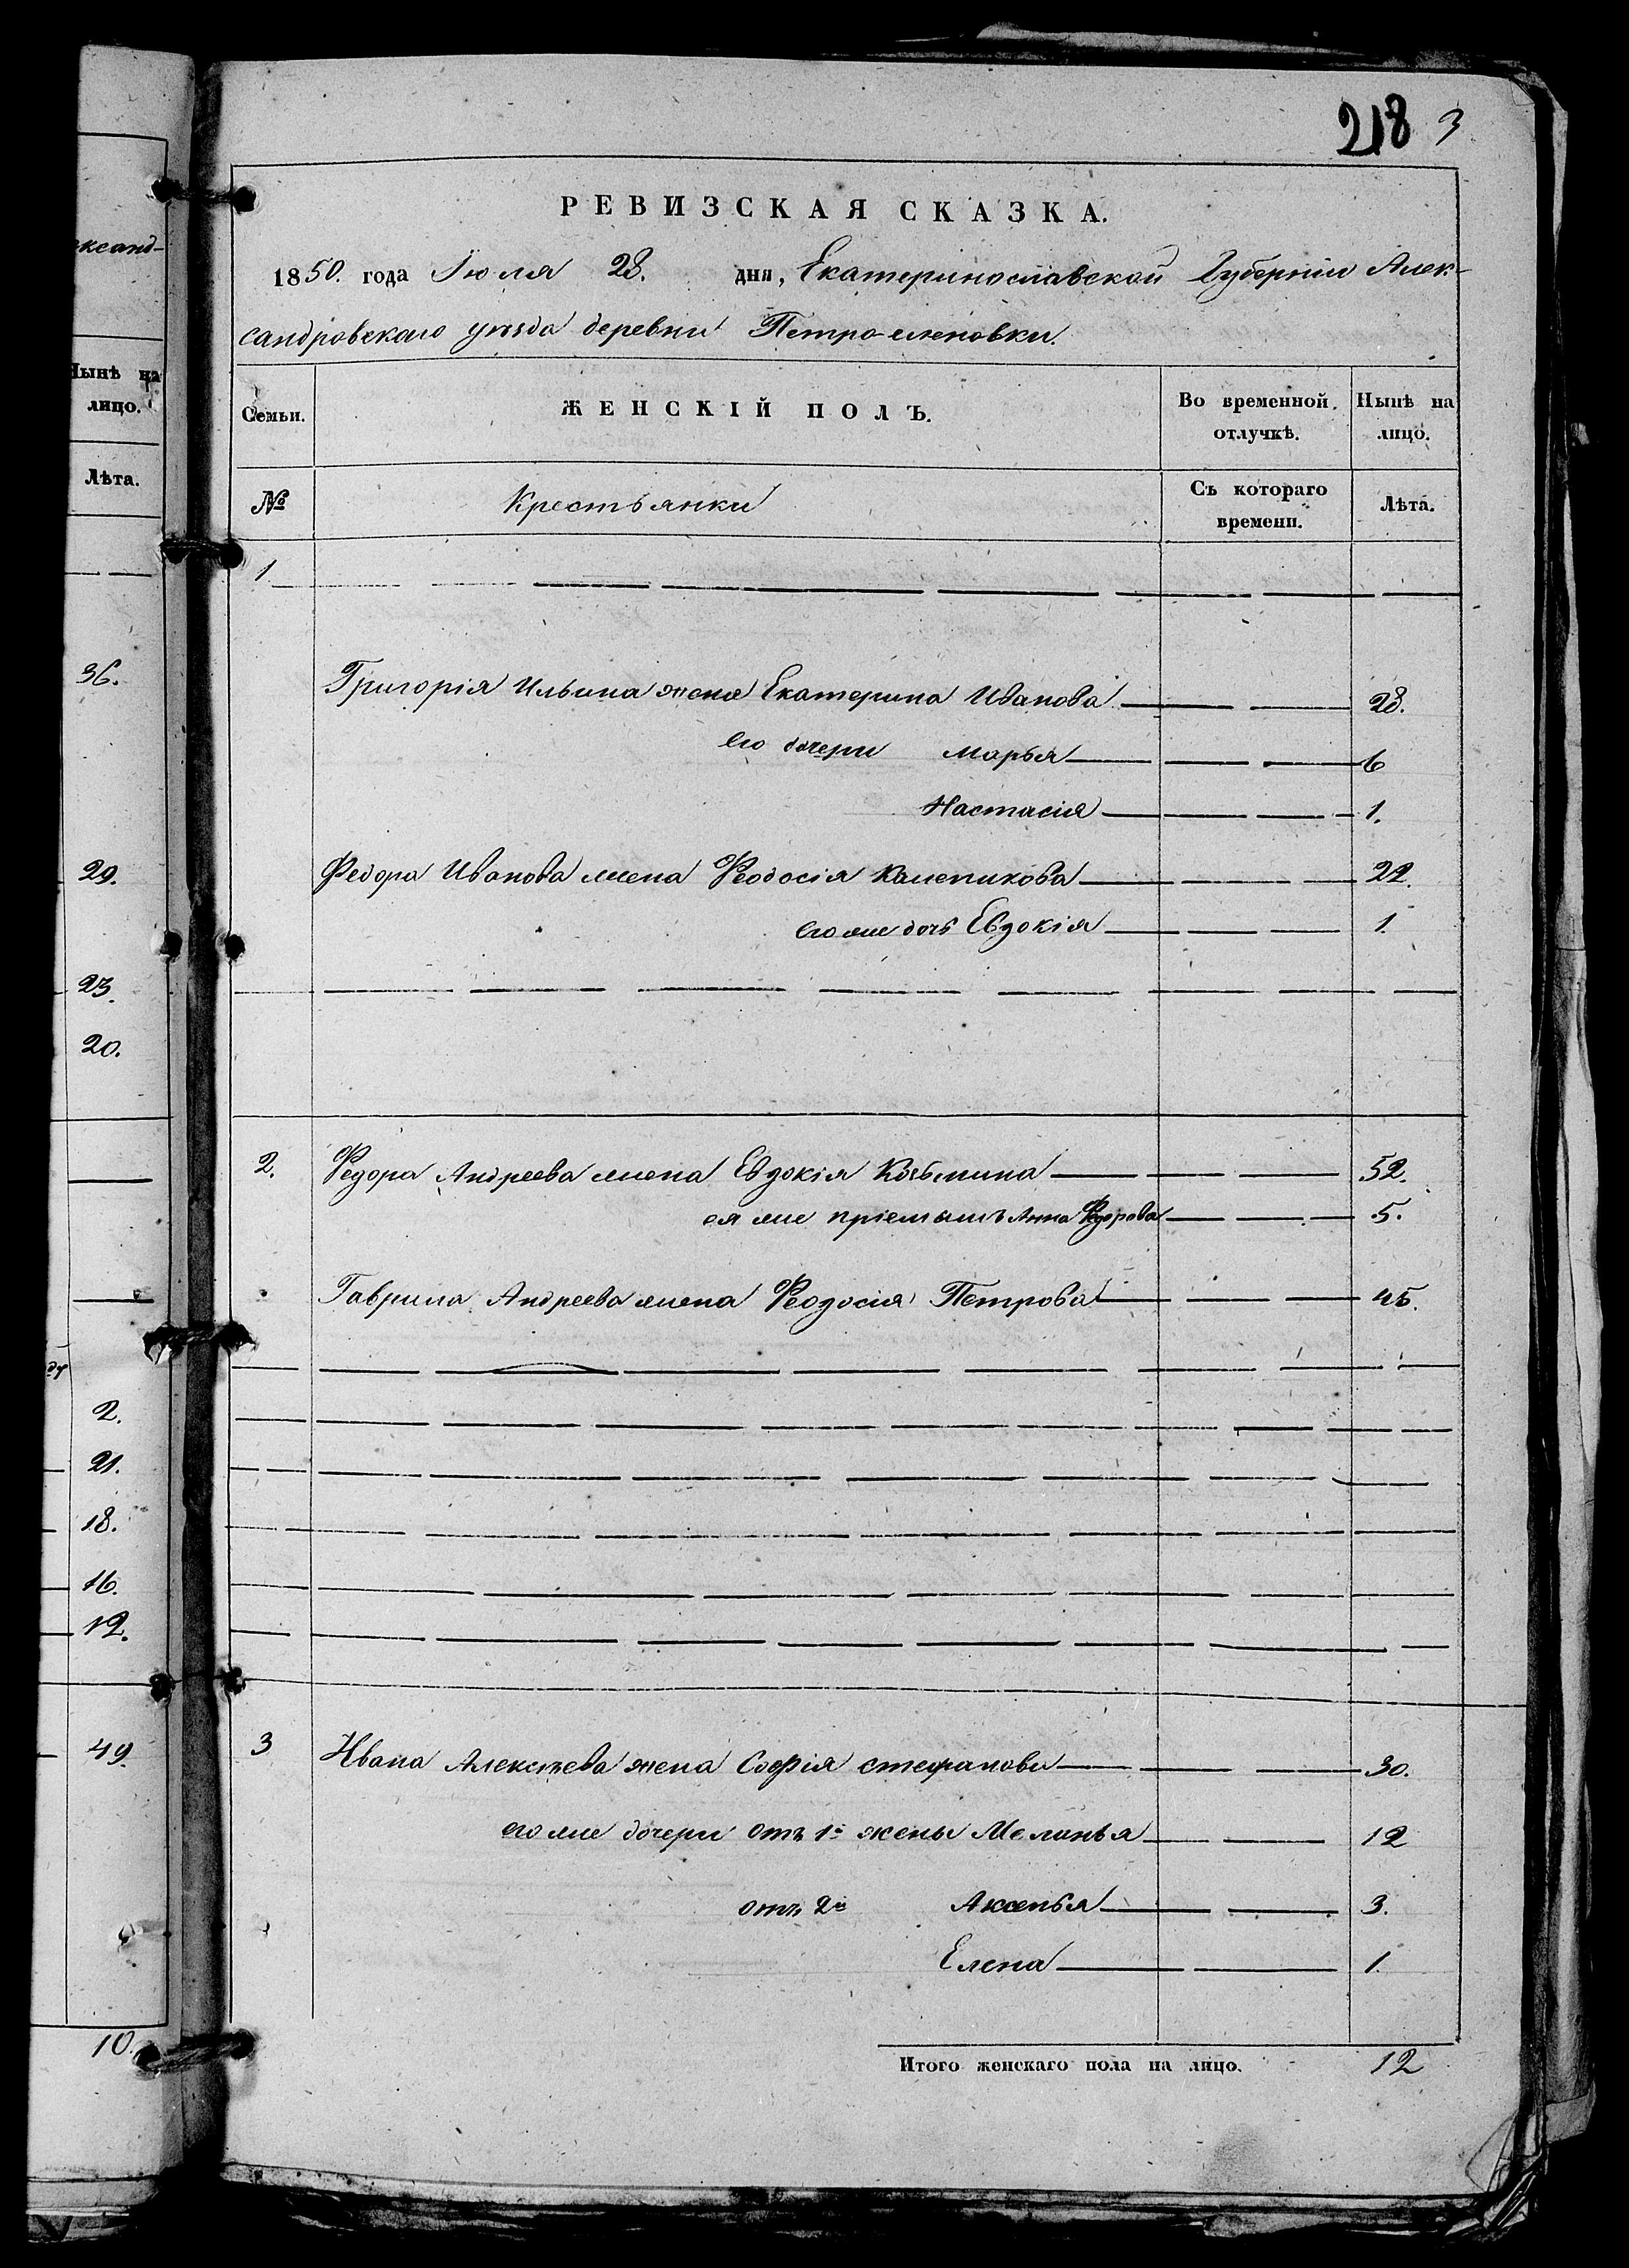 218 3
РЕВИЗСКАЯ СКАЗКА.
1850. года Іюля 28. дня, Екатеринославской Губерніи Алек-
сандровскаго уѣзда деревни Петро-еленовки.
ксанд-
Нынѣ на
лицо.
Лѣта.
36.
29.
23.
20.
2.
21.
18.
16.
12.
49.
10.
Семьи. ЖЕНСКІЙ ПОЛЪ. Во временной отлучкѣ. Нынѣ на лицо.
№ Крестьянки Съ котораго времени. Лѣта.
1
Григорія Ильина жена Екатерина Иванова 28.
его дочери Марья 6
Настасія 1.
Федора Иванова жена Феодосія 22.
его же дочь Евдокія 1.
2. Федора Андреева жена Евдокія Козьмина 52.
ея же пріемышъ Анна Федорова 5.
Гаврила Андреева жена Феодосія Петрова 45.
3 Ивана Алексѣева жена Софія Стефанова 30.
его же дочери отъ 1й жены Меланья 12
отъ 2й Аксенья 3.
Елена 1.
Итого женскаго пола на лицо. 12